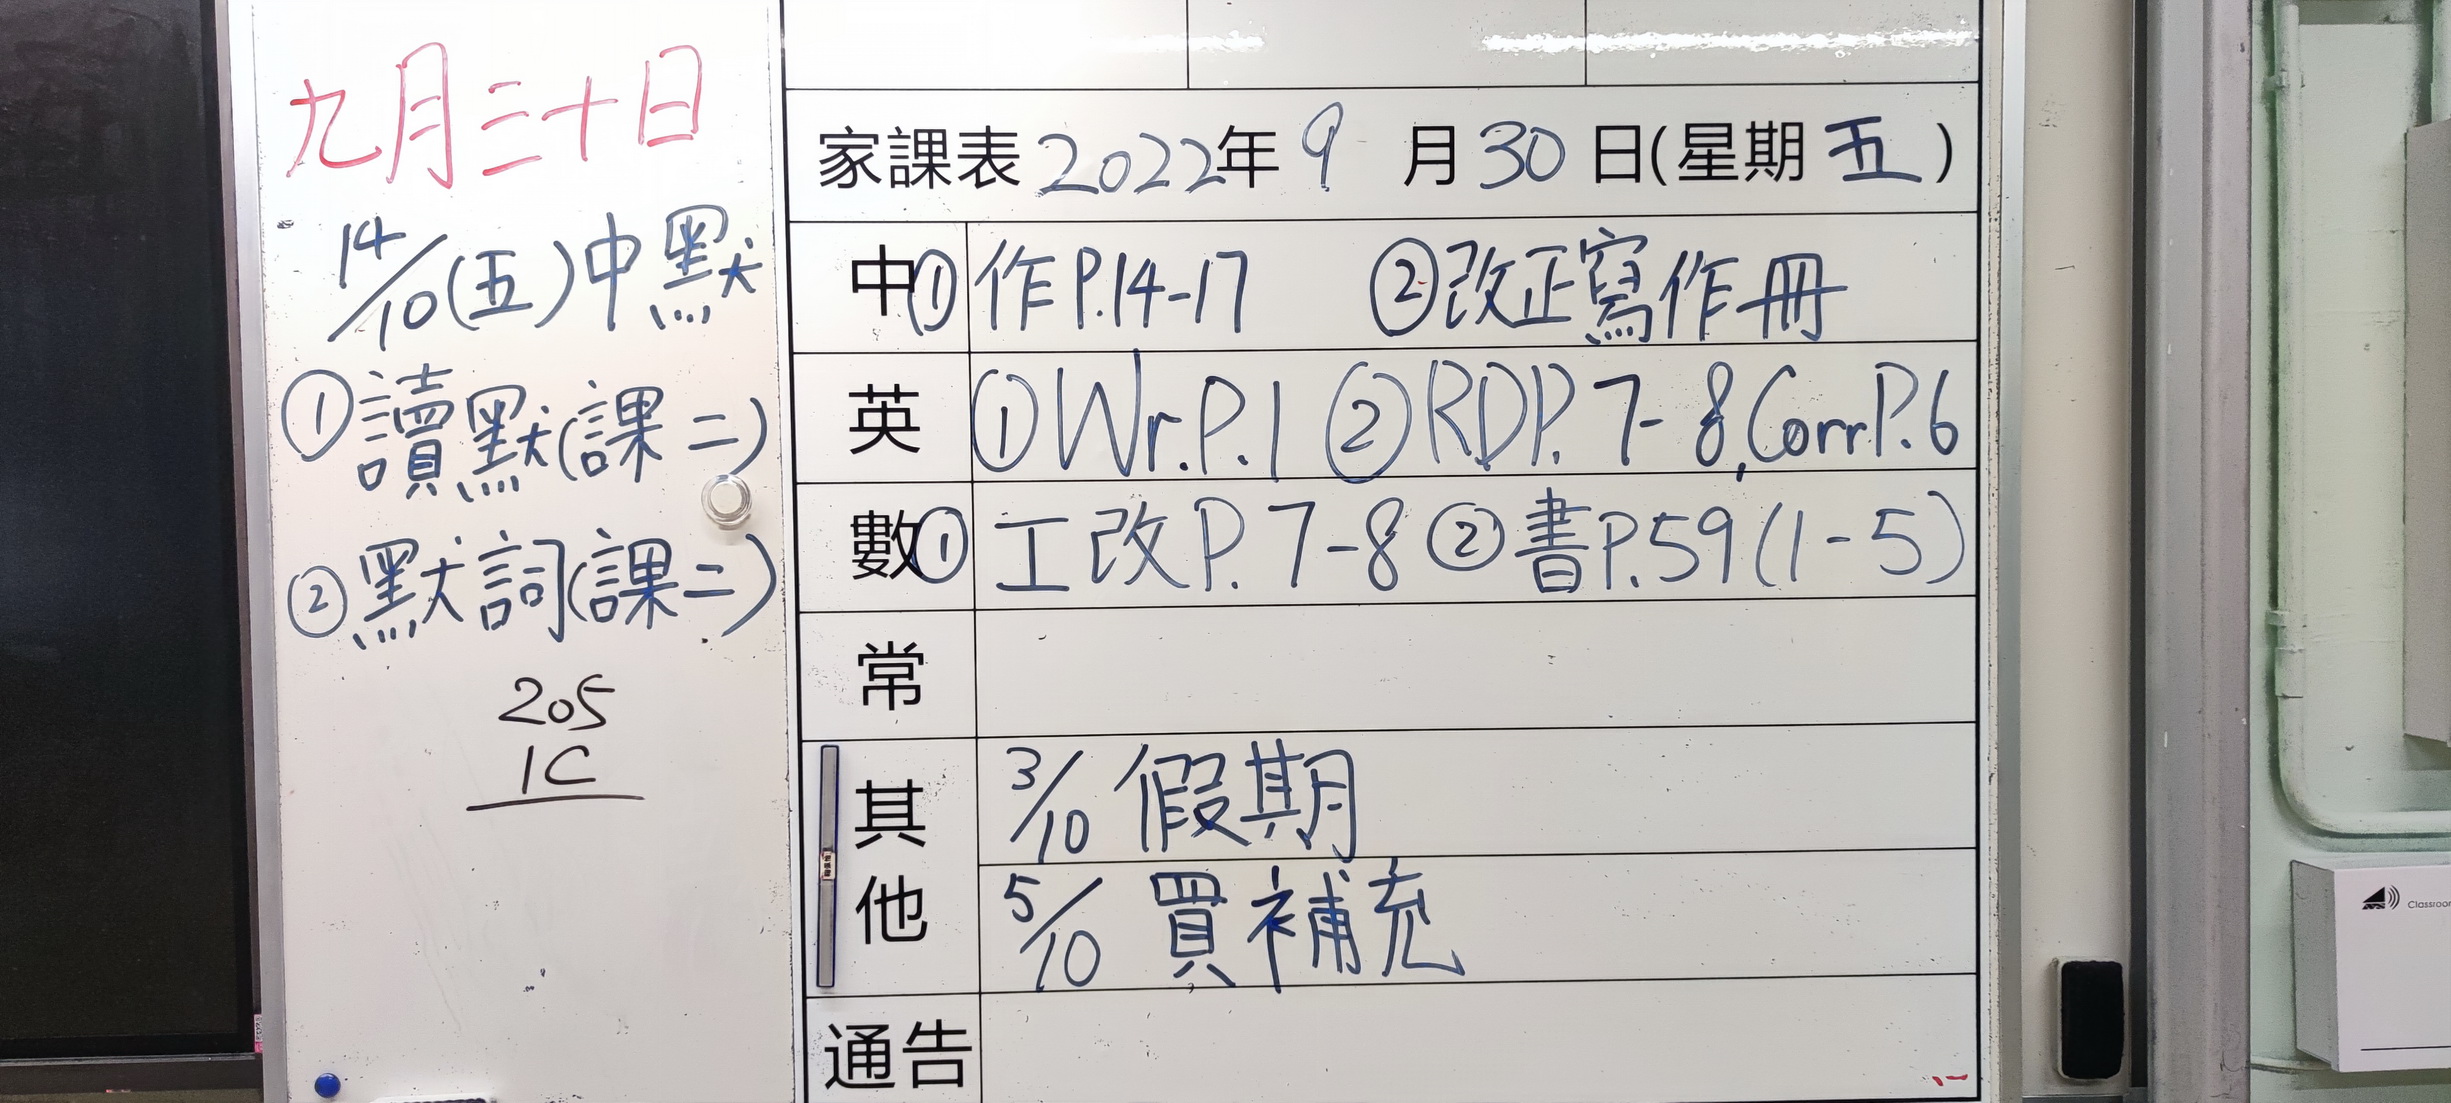 九月三十日
14/10(五)中默
①讀默(課二)
②默詞(課二)
205
1C
家課表2022年9月30日(星期五)
中①作P.14-17 ②改正寫作冊
英①Wr.P.1 ②RDP.7-8,Corr.P.6
數①工改P.7-8 ②書P.59(1-5)
常
其他
3/10 假期
5/10 買補充
通告
Classroom